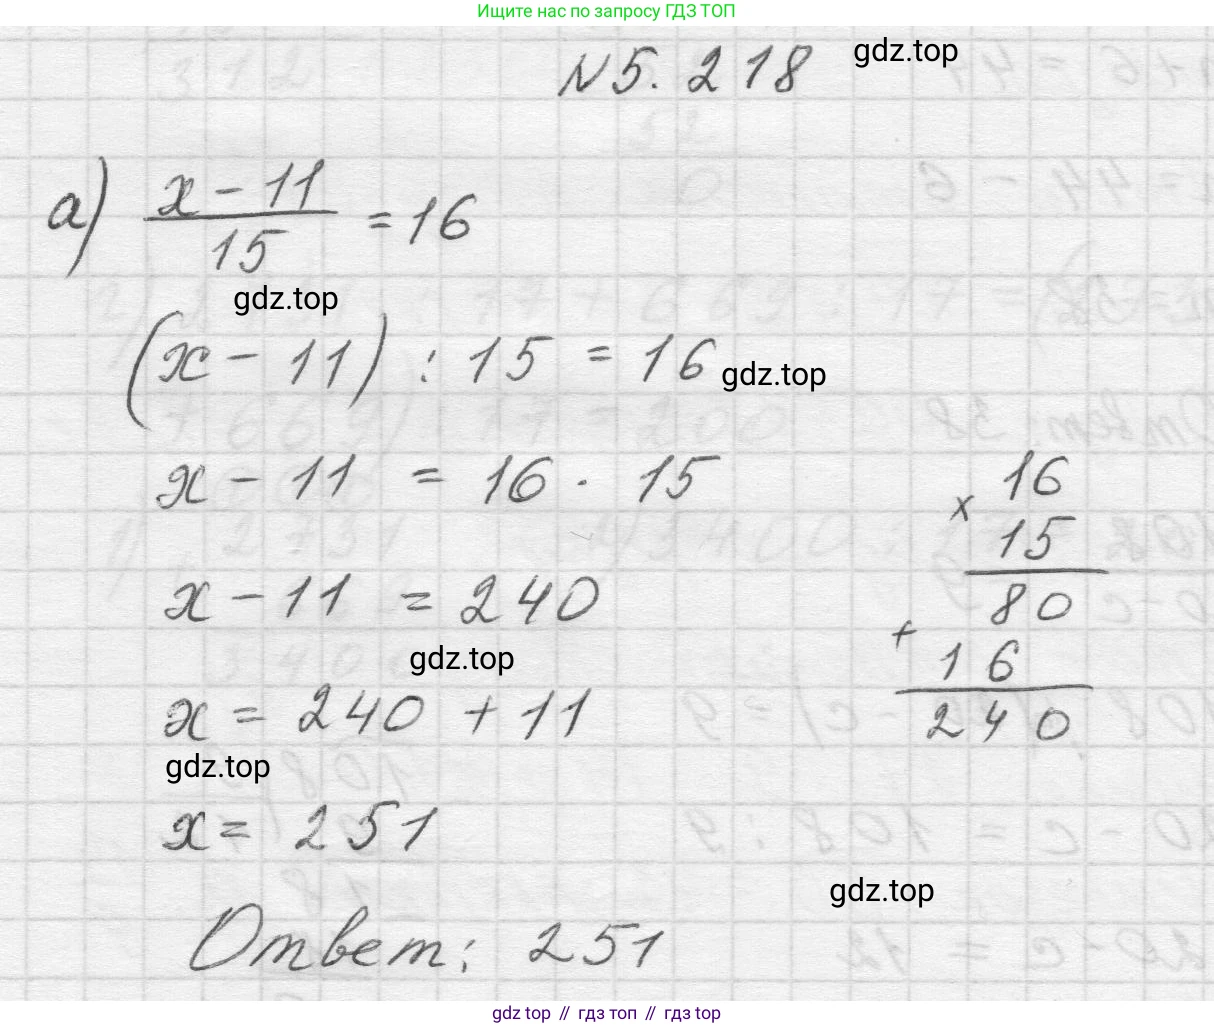 Ищите нас по запросу ГДЗ ТОП
N 5. 218
gdz.top
а) x - 11 / 15 = 16
gdz.top
(x - 11) : 15 = 16
gdz.top
x - 11 = 16 · 15
x - 11 = 240
gdz.top
x = 240 + 11
gdz.top
x = 251
16
x 15
80
+ 16
240
gdz.top
Ответ: 251
gdz.top // гдз топ // гдз топ